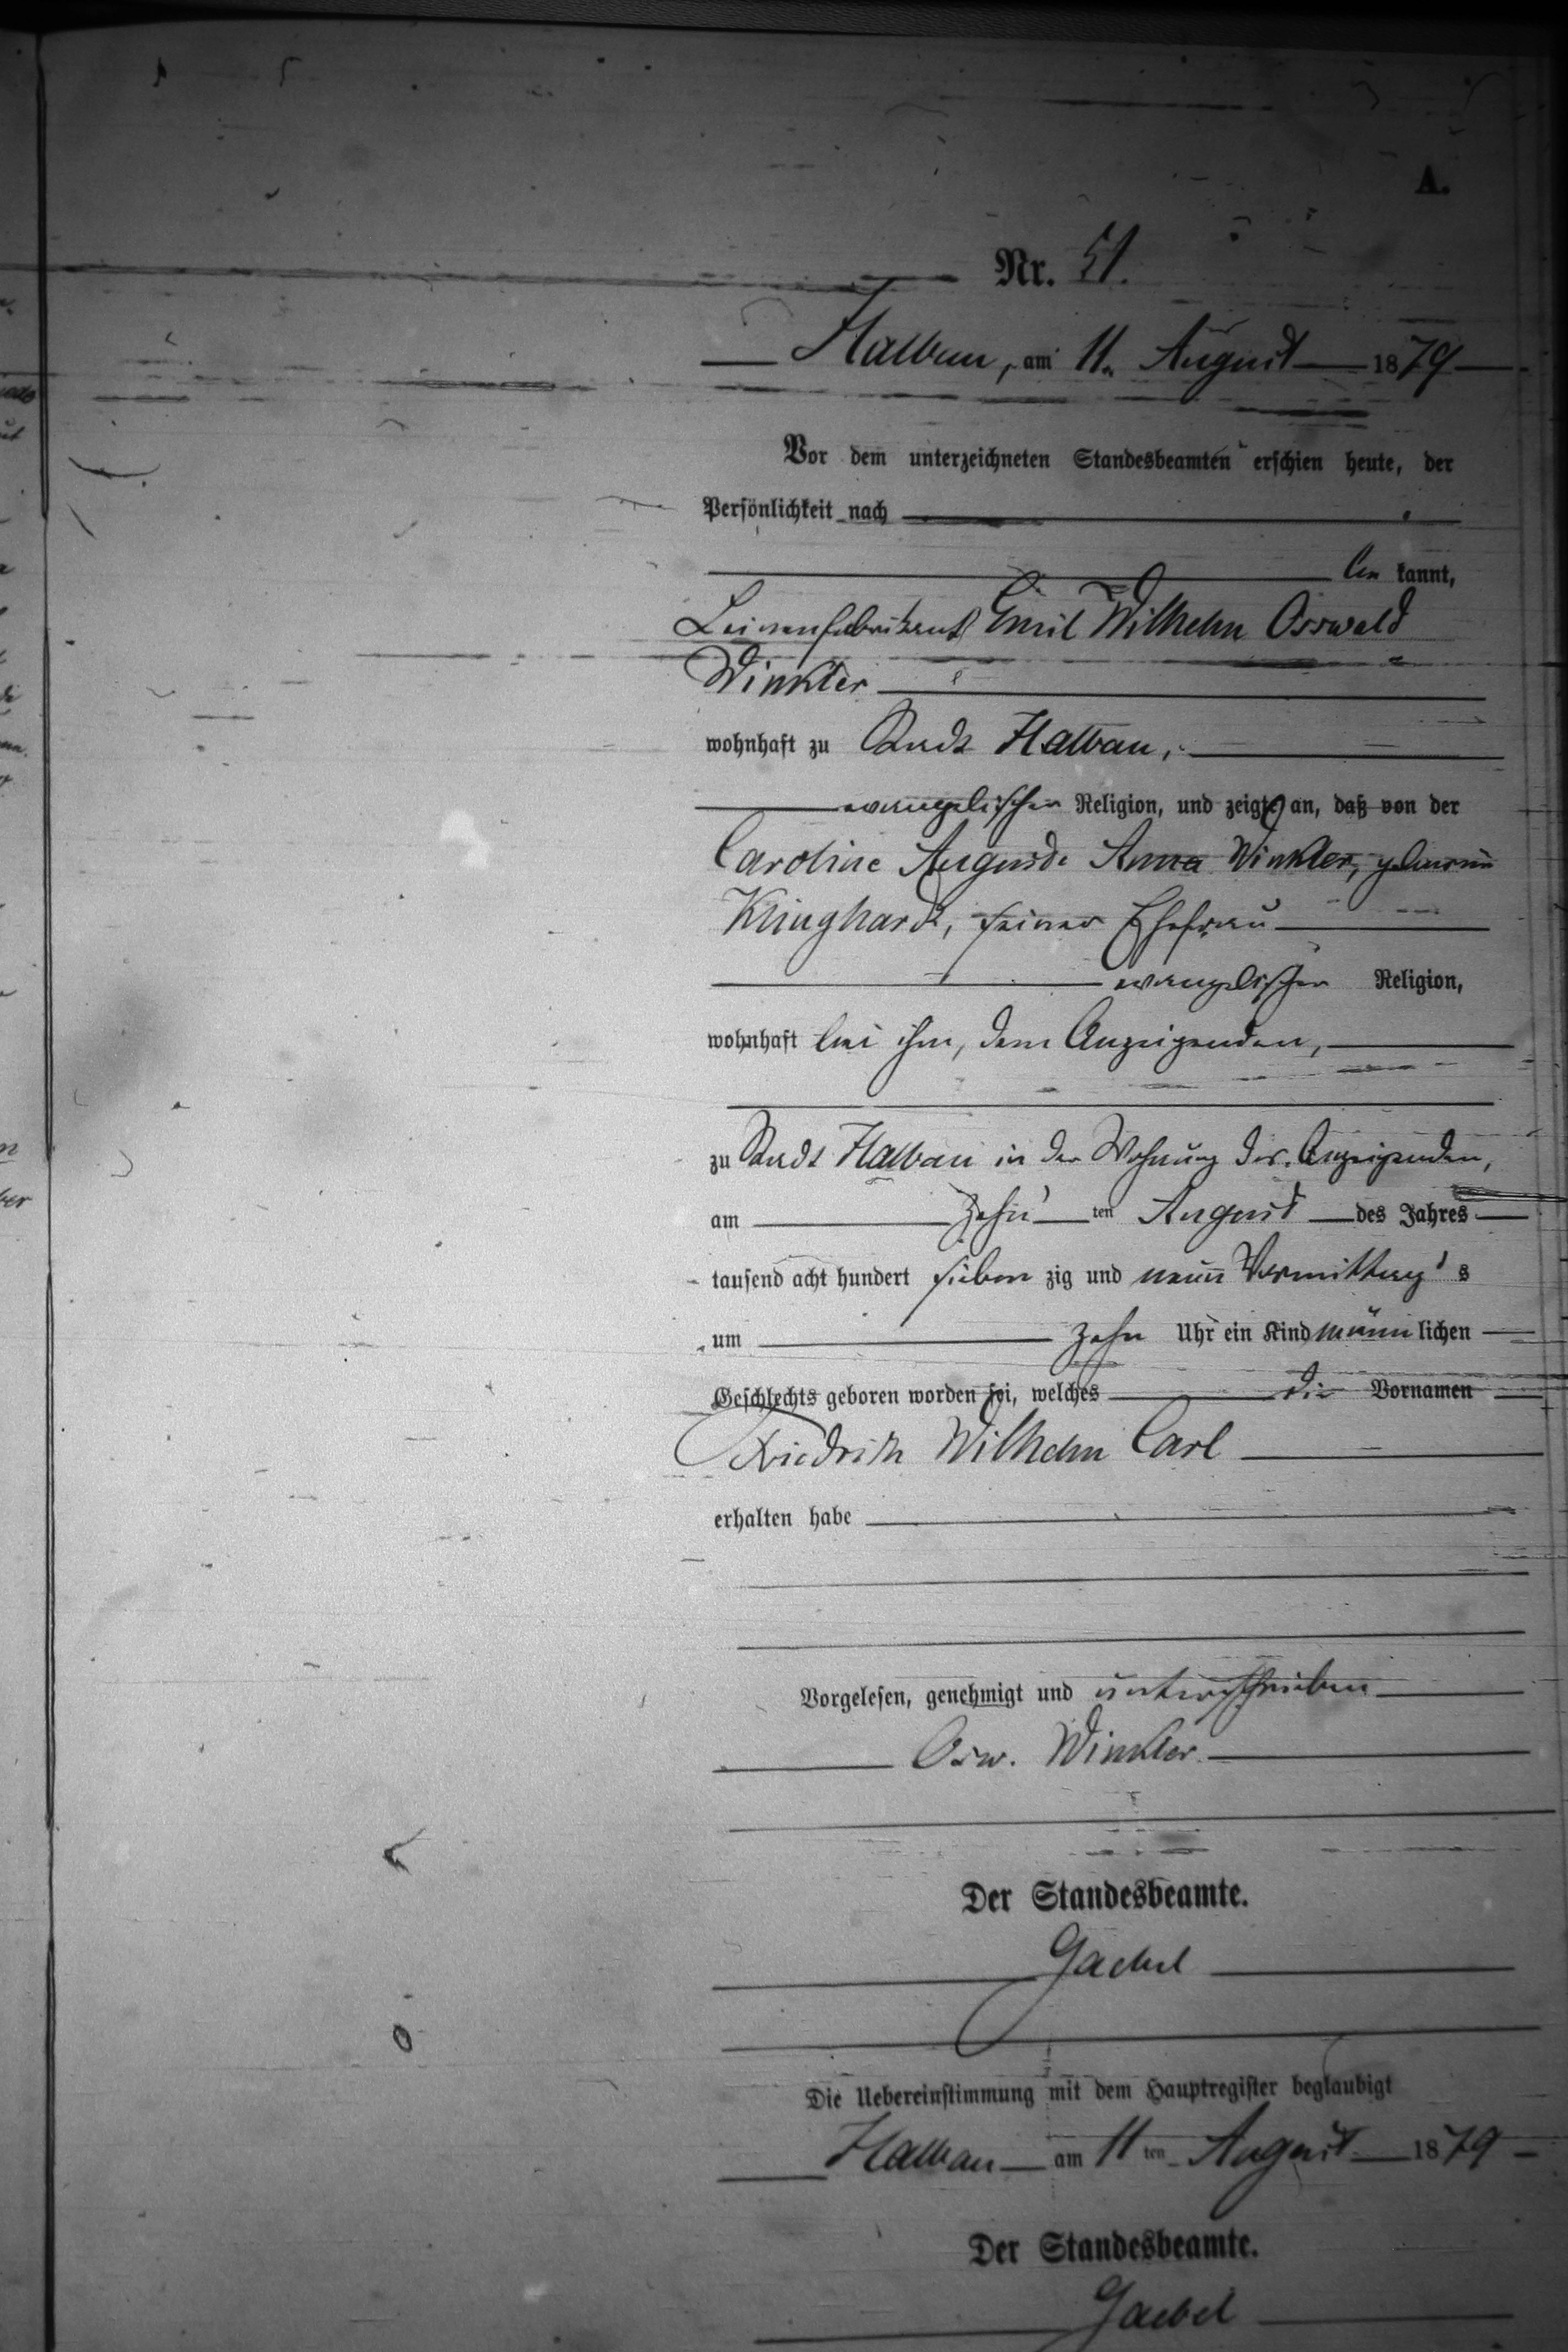 A.
Nr. 51.
Halbau, am 11. August 1879
Vor dem unterzeichneten Standesbeamten erschien heute, der
Persönlichkeit nach
be kannt,
Leinenfabrikant Emil Wilhelm Osswald
Winkler
wohnhaft zu Stadt Halbau,
evangelischer Religion, und zeigte an, daß von der
Caroline Auguste Anna Winkler, geborene
Klinghardt, seiner Ehefrau
evangelischer Religion,
wohnhaft bei ihm, dem Anzeigenden,
zu Stadt Halbau in der Wohnung des Anzeigenden,
am zehn ten August des Jahres
tausend acht hundert sieben zig und neun Vormittag s
um zehn Uhr ein Kind männ lichen
Geschlechts geboren worden sei, welches die Vornamen
Friedrich Wilhelm Carl
erhalten habe
Vorgelesen, genehmigt und unterschrieben
Osw. Winkler.
Der Standesbeamte.
Gaebel
Die Uebereinstimmung mit dem Hauptregister beglaubigt
Halbau am 11 ten August 1879
Der Standesbeamte.
Gaebel